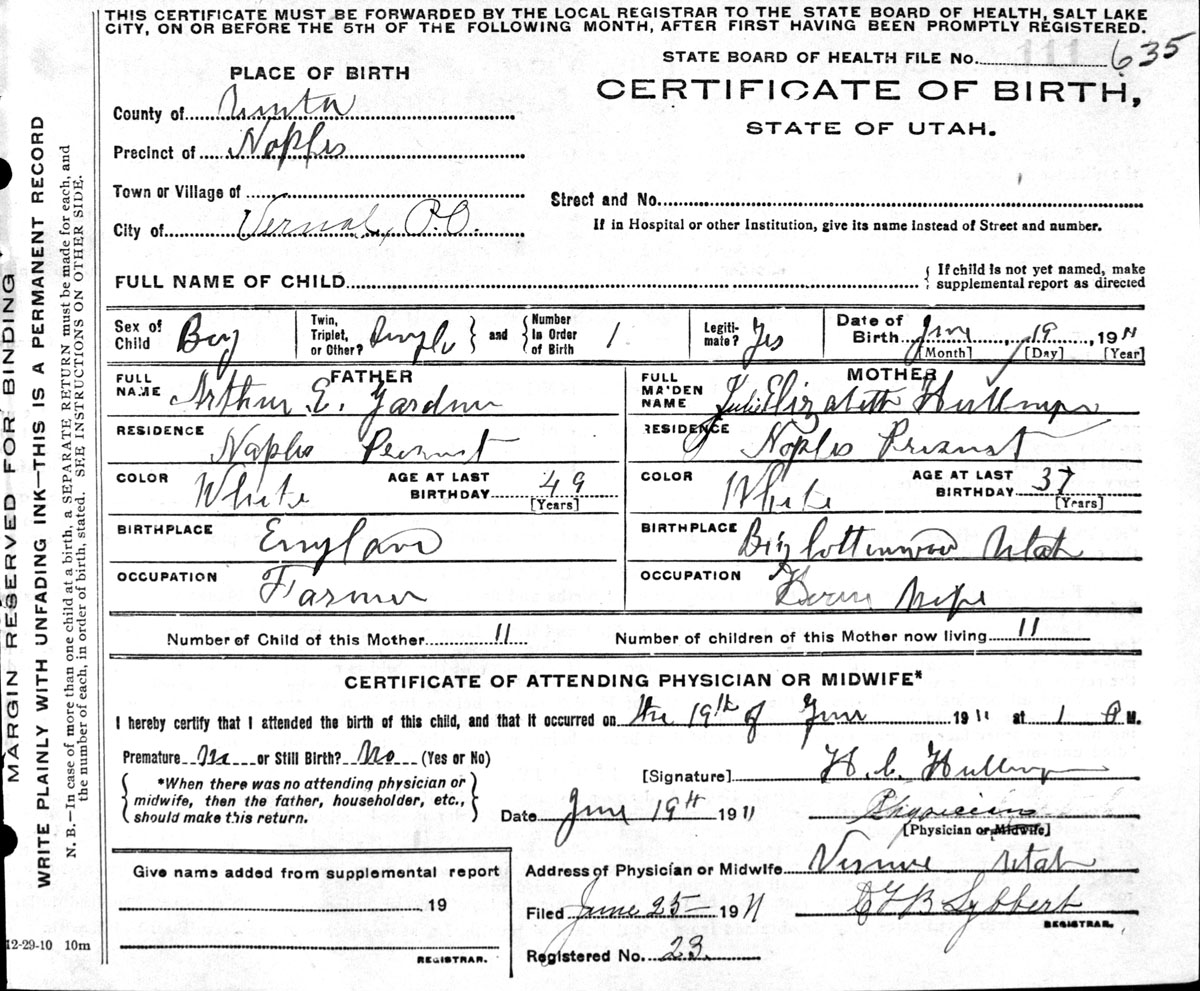 THIS CERTIFICATE MUST BE FORWARDED BY THE LOCAL REGISTRAR TO THE STATE BOARD OF HEALTH, SALT LAKE
CITY, ON OR BEFORE THE 5TH OF THE FOLLOWING MONTH, AFTER FIRST HAVING BEEN PROMPTLY REGISTERED.
STATE BOARD OF HEALTH FILE No. 635
CERTIFICATE OF BIRTH,
STATE OF UTAH.
PLACE OF BIRTH
County of Uinta
Precinct of Naples
Town or Village of
Street and No.
City of Vernal, P.O.
If in Hospital or other Institution, give its name instead of Street and number.
FULL NAME OF CHILD
{ If child is not yet named, make
supplemental report as directed
Sex of Child Boy
Twin, Triplet, or Other? Single } and { Number in Order of Birth 1
Legitimate? Yes
Date of Birth June 19, 1911
[Month] [Day] [Year]
FATHER
FULL NAME Arthur E. Gardner
RESIDENCE Naples Precinct
COLOR White AGE AT LAST BIRTHDAY 49
[Years]
BIRTHPLACE England
OCCUPATION Farmer
MOTHER
FULL MAIDEN NAME Julie Elizabeth
RESIDENCE Naples Precinct
COLOR White AGE AT LAST BIRTHDAY 37
[Years]
BIRTHPLACE Big Cottonwood Utah
OCCUPATION House Wife
Number of Child of this Mother 11 Number of children of this Mother now living 11
CERTIFICATE OF ATTENDING PHYSICIAN OR MIDWIFE*
I hereby certify that I attended the birth of this child, and that it occurred on the 19th of June 1911 at 1 P M.
Premature No or Still Birth? No (Yes or No)
{ *When there was no attending physician or
midwife, then the father, householder, etc.,
should make this return. }
[Signature] H. C.
Date June 19th 1911 Physician
[Physician or Midwife]
Give name added from supplemental report
, 19
REGISTRAR.
Address of Physician or Midwife Utah
Filed June 25 1911 Sybbert
REGISTRAR.
Registered No. 23
12-29-10 10m
MARGIN RESERVED FOR BINDING
WRITE PLAINLY WITH UNFADING INK—THIS IS A PERMANENT RECORD
N. B.—In case of more than one child at a birth, a SEPARATE RETURN must be made for each, and
the number of each, in order of birth, stated. SEE INSTRUCTIONS ON OTHER SIDE.